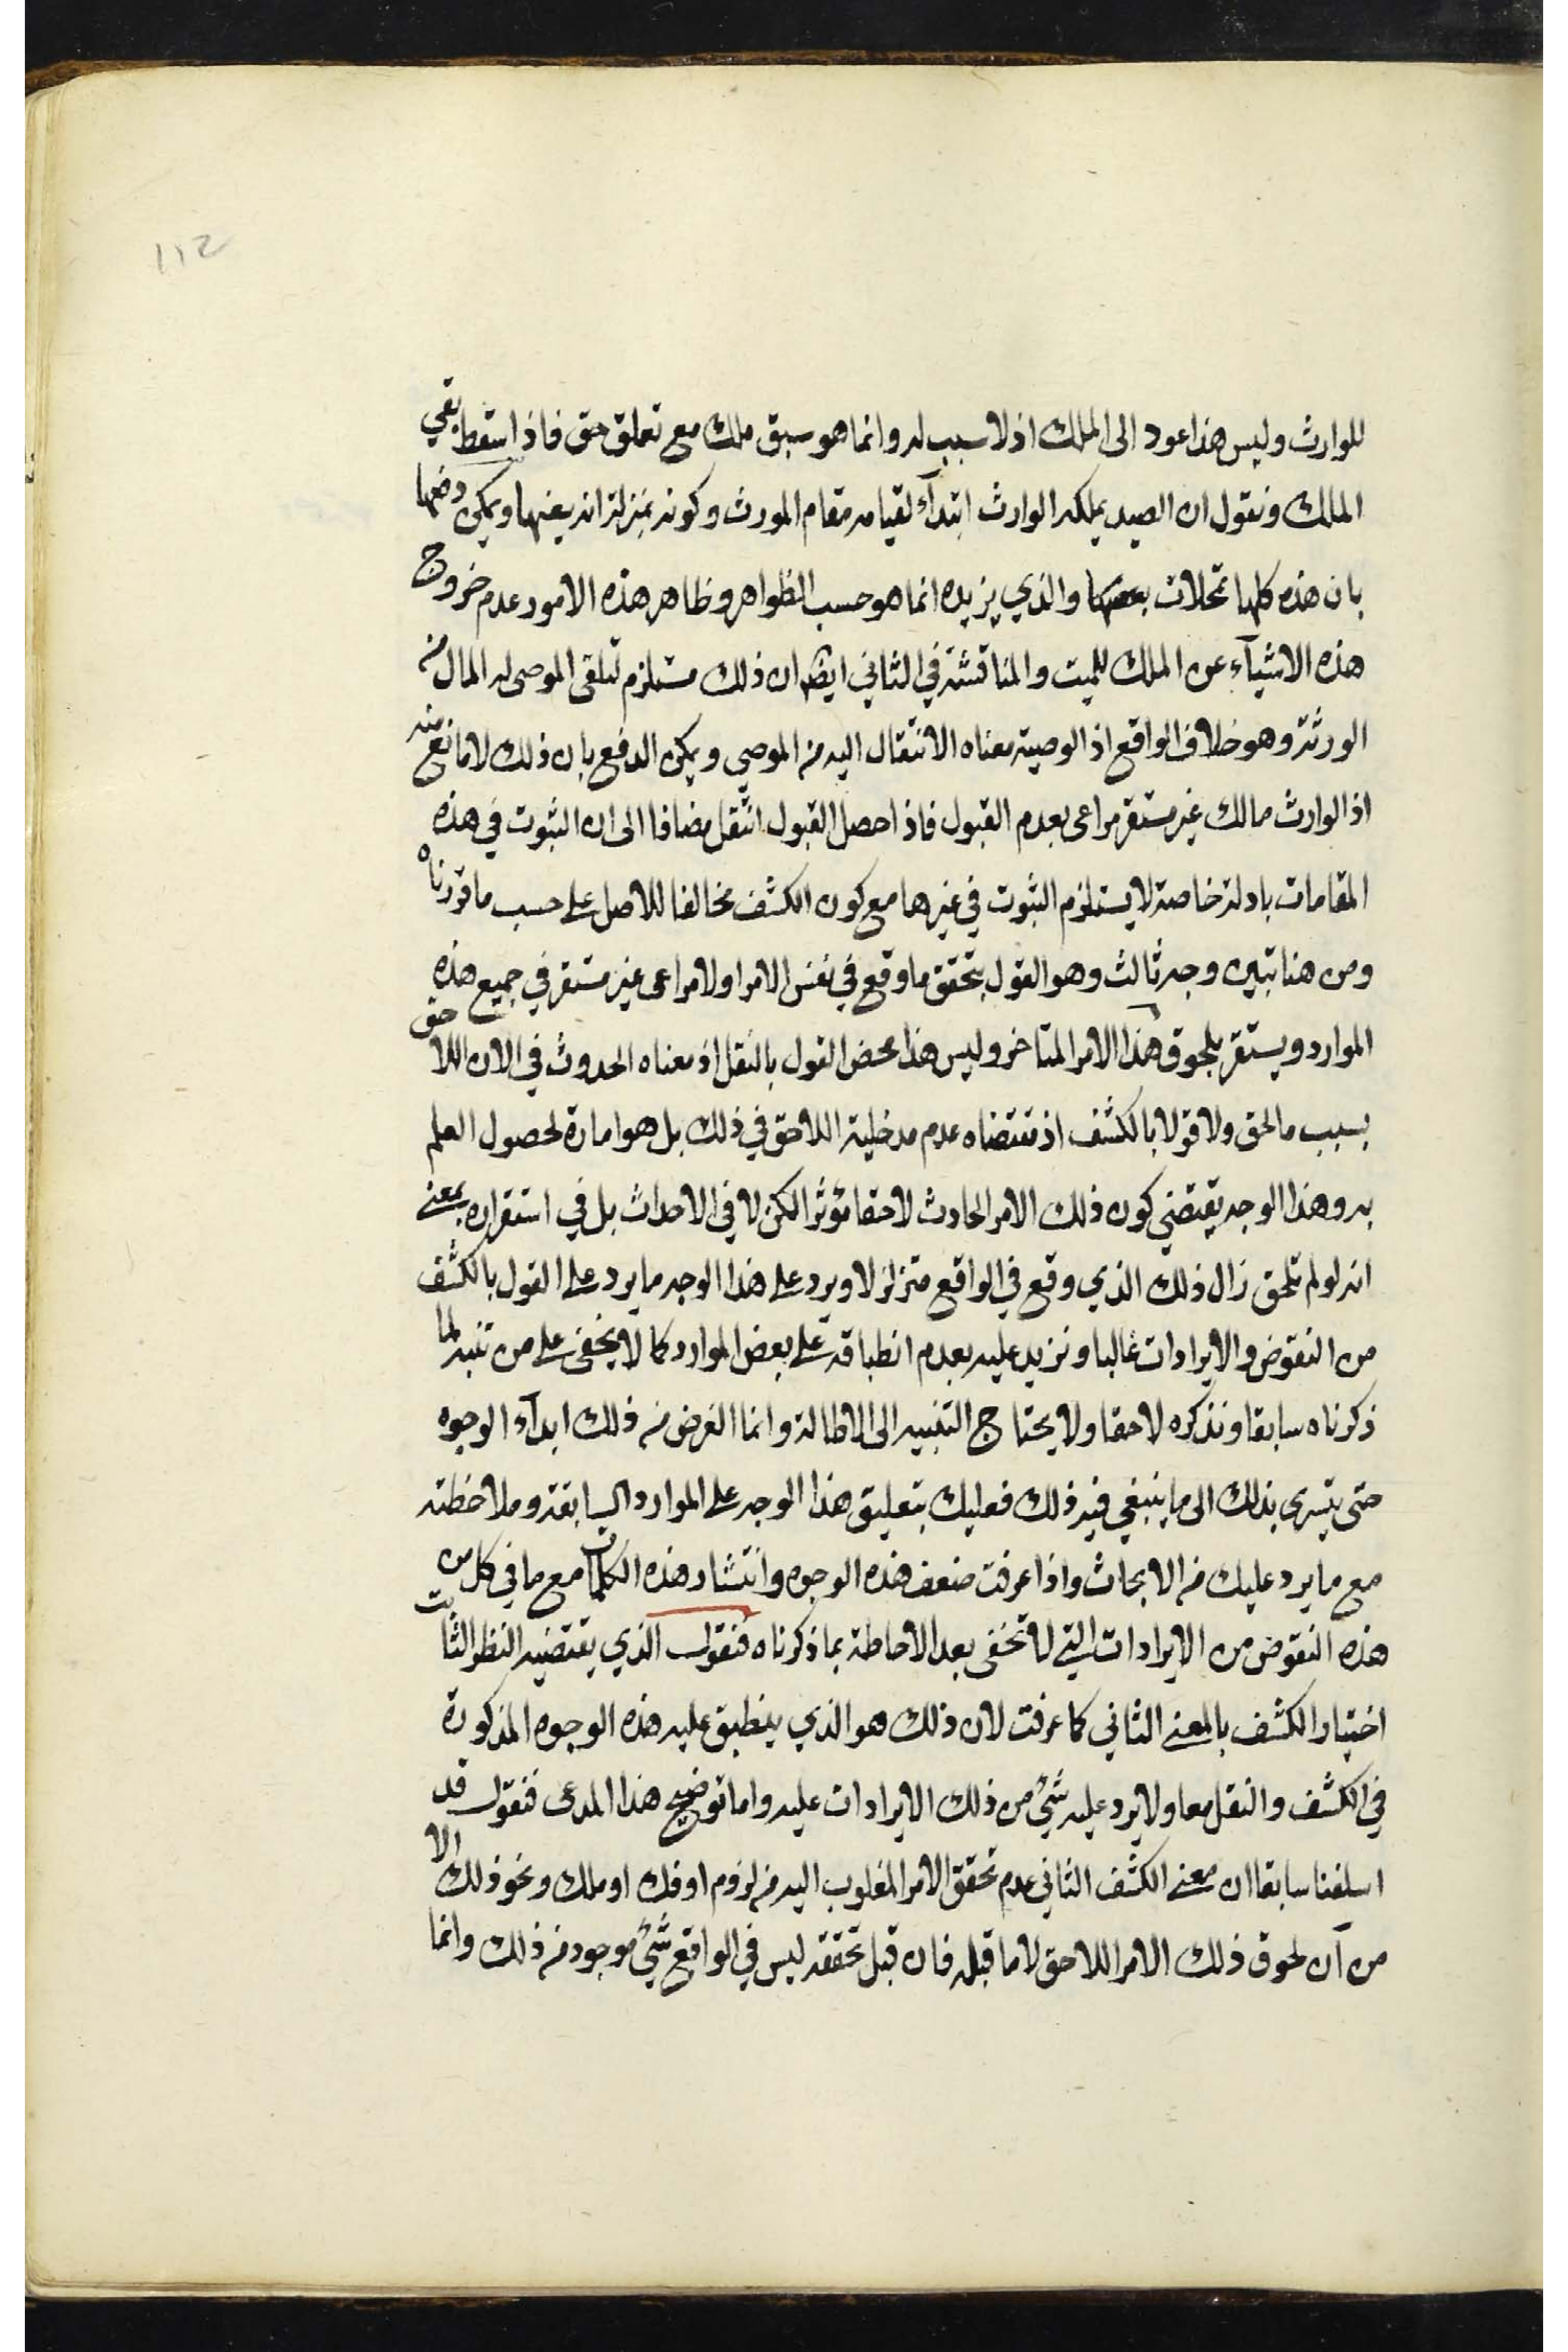 ١١٢
للوارث وليس هذا عود الى الملك اذ لا سبب له وانما هو سبق ملك مع تعلق حق فاذا سقط بقي
المالك ونقول ان الصيد يملكه الوارث ابتدآء لقيامه مقام المورث وكونه بمنزلته انه يغنيها ويمكن دفعها
بان هذه كلها تمحلات بعضها والذي يزيده انما هو حسب الظواهر وظاهر هذه الامور عدم خروج
هذه الاشيآء عن الملك للميت والمناقشة في الثاني ايضا ان ذلك مستلزم لتلقى الموصى له المال من
الورثة وهو خلاف الواقع اذ الوصية معناه الانتقال اليه من الموصي ويمكن الدفع بان ذلك لا مانع منه
اذ الوارث مالك غير مستقر مراعى بعدم القبول فاذا حصل القبول انتقل مضافا الى ان الثبوت في هذه
المقامات بادلة خاصة لا يستلزم الثبوت في غيرها مع كون الكشف مخالفا للاصل على حسب ما قررناه
ومن هنا تبين وجه ثالث وهو القول بتحقق ما وقع في نفس الامر اولا مراعى غير مستقر في جميع هذه
الموارد ويستقر بلحوق هذا الامر المتاخر وليس هذا محض القول بالنقل اذ معناه الحدوث في الان اللاحق
بسبب ما لحق ولا قولا بالكشف اذ مقتضاه عدم مدخلية اللاحق في ذلك بل هو امارة لحصول العلم
به وهذا الوجه يقتضي كون ذلك الامر الحادث لاحقا مؤثرا لكن لا في الاحداث بل في استقراره بمعنى
انه لو لم تلحق زال ذلك الذي وقع في الواقع متزلزلا ويرد على هذا الوجه ما يرد على القول بالكشف
من النقوض والايرادات غالبا ونزيد عليه بعدم انطباقه على بعض الموارد كما لا يخفى على من تنبه لما
ذكرناه سابقا ونذكره لاحقا ولا يحتاج التنبيه الى الاطالة وانما الغرض من ذلك ابدآء الوجوه
حتى يتسرى بذلك الى ما ينبغي فيه ذلك فعليك بتعليق هذا الوجه على الموارد السابقة وملاحظته
مع ما يرد عليك من الابحاث واذا عرفت ضعف هذه الوجوه وانتشار هذه الكلمات مع ما في كل من
هذه النقوض من الايرادات التي لا تخفى بعد الاحاطة بما ذكرناه فنقول الذي يقتضيه النظر الثابت
اختيار الكشف بالمعنى الثاني كما عرفت لان ذلك هو الذي ينطبق عليه هذه الوجوه المذكورة
في الكشف والنقل معا ولا يرد عليه شيء من ذلك الايرادات عليه واما توضيح هذا المدعى فنقول قد
اسلفنا سابقا ان معنى الكشف الثاني عدم تحقق الامر المغلوب اليه من لزوم او فك او ملك ونحو ذلك الا
من آن لحوق ذلك الامر اللاحق لا ما قبله فان قبل تحققه ليس في الواقع شيء موجود من ذلك وانما